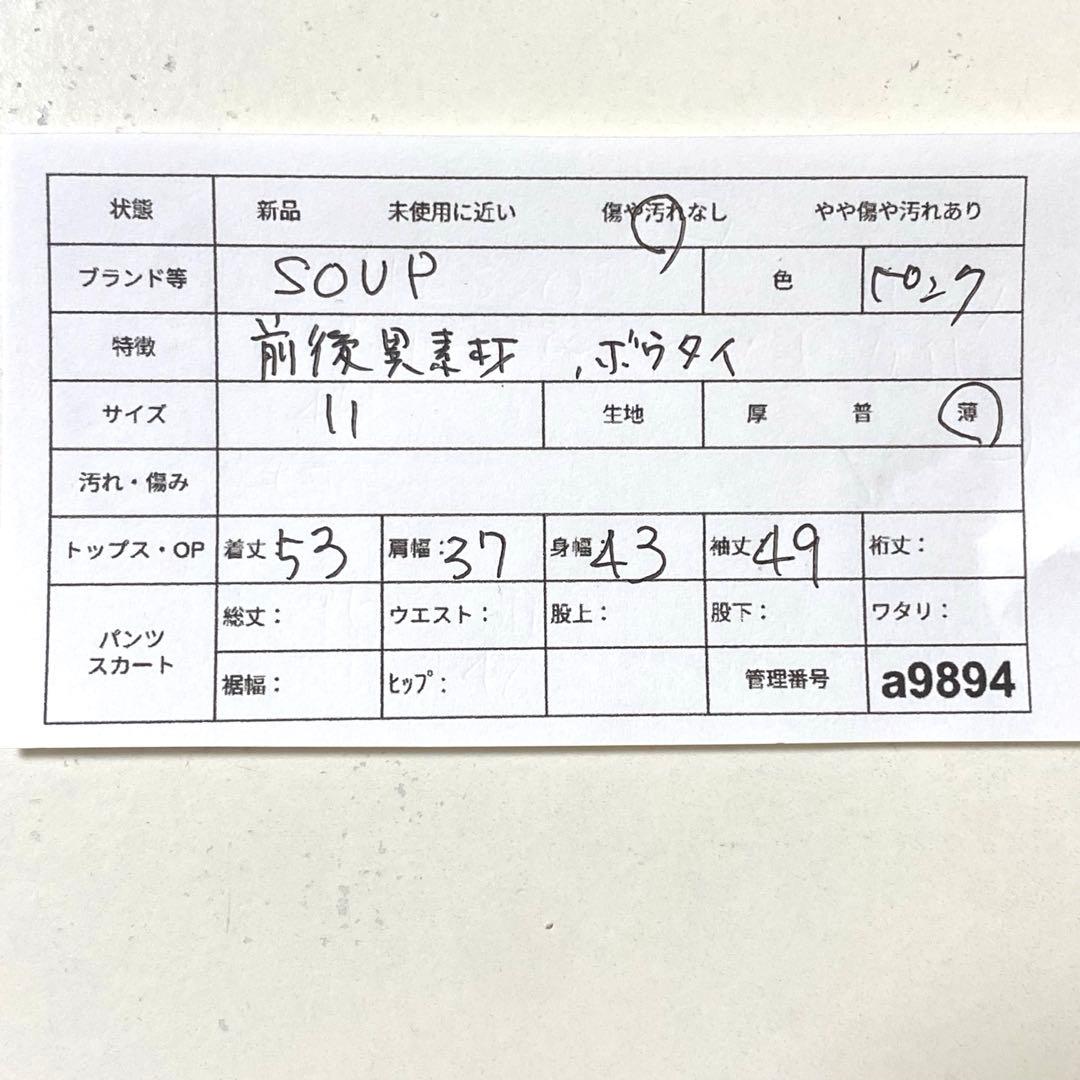 状態 新品 未使用に近い 傷や汚れなし やや傷や汚れあり
ブランド等 SOUP 色 ピンク
特徴 前後異素材、ボウタイ
サイズ 11 生地 厚 普 薄
汚れ・傷み
トップス・OP 着丈:53 肩幅:37 身幅:43 袖丈:49 裄丈:
パンツ スカート 総丈: ウエスト: 股上: 股下: ワタリ:
裾幅: ヒップ: 管理番号 a9894